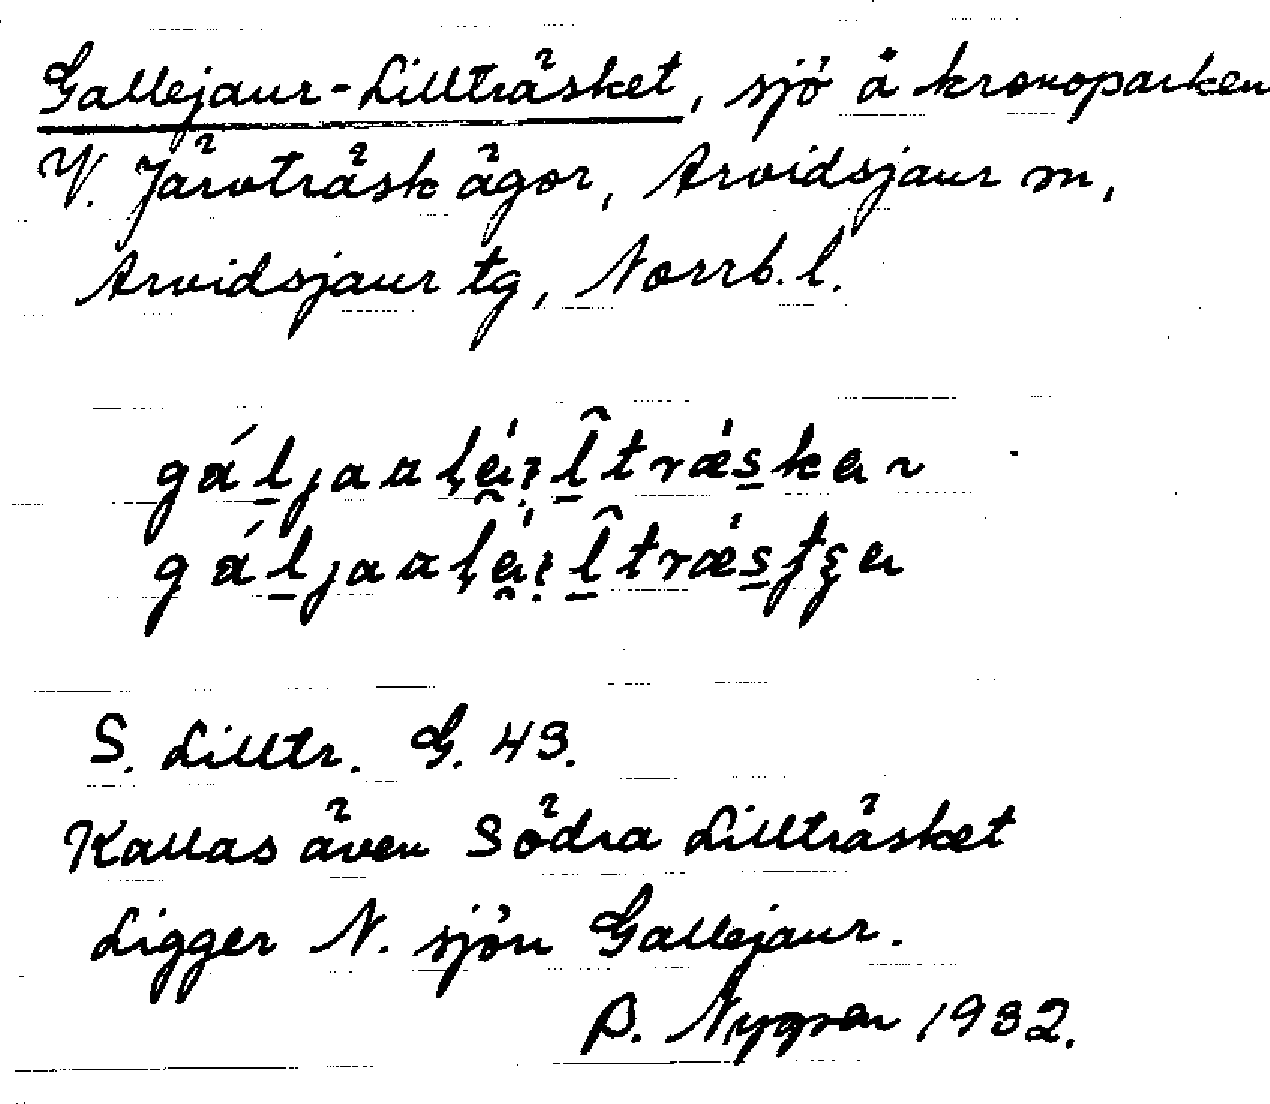 Gallejaur-Lillträsket, sjö å kronoparken
V. Järvträsk ägor, Arvidsjaur sn,
Arvidsjaur tg, Norrb. l.
S. Lilltr. G. 43.
Kallas även Södra Lillträsket
Ligger N. sjön Gallejaur.
Nygren 1932.